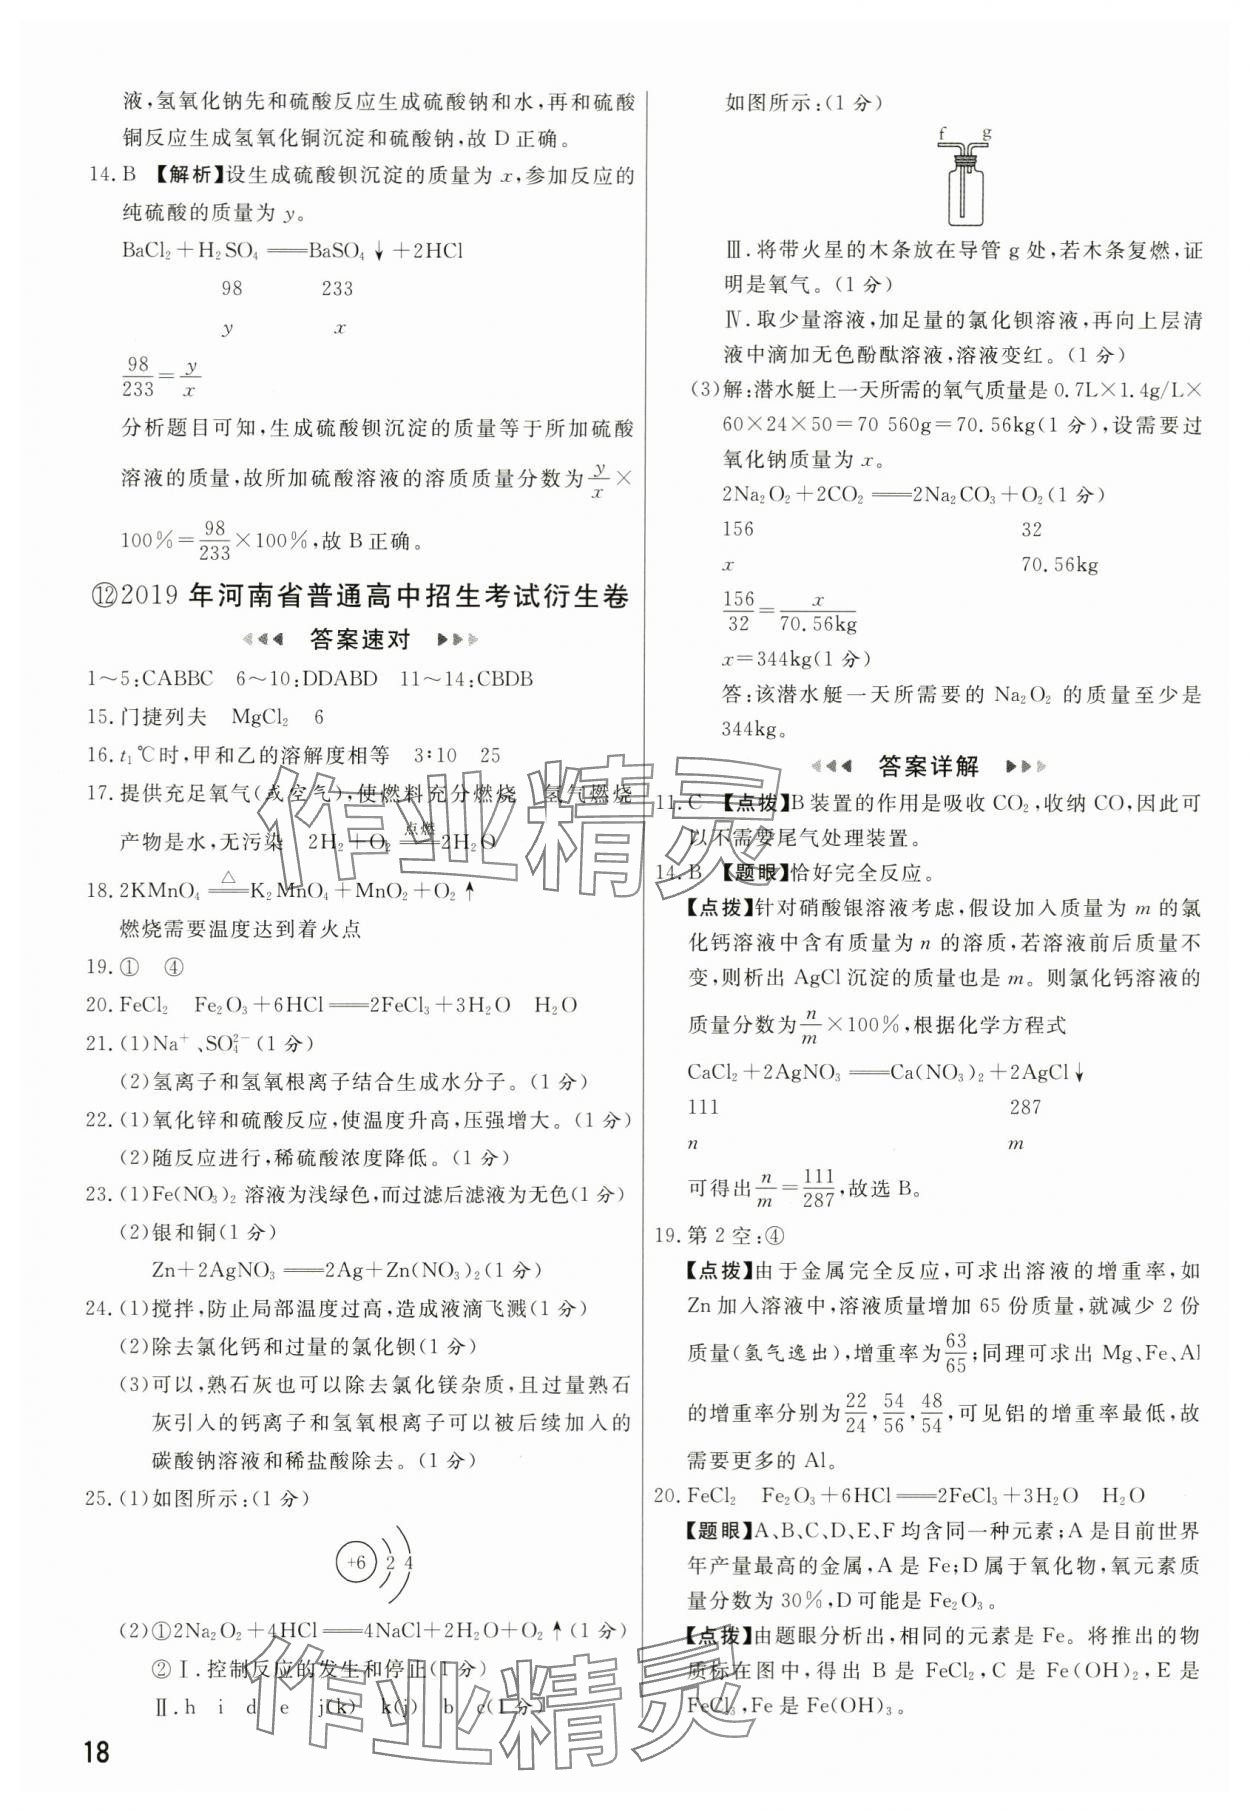 液,氢氧化钠先和硫酸反应生成硫酸钠和水,再和硫酸
铜反应生成氢氧化铜沉淀和硫酸钠,故 D 正确。
14. B 【解析】设生成硫酸钡沉淀的质量为 x,参加反应的
纯硫酸的质量为 y。
BaCl₂＋H₂SO₄══BaSO₄↓＋2HCl
98 233
y x
98/233＝y/x
分析题目可知,生成硫酸钡沉淀的质量等于所加硫酸
溶液的质量,故所加硫酸溶液的溶质质量分数为 y/x ×
100%＝98/233×100%,故 B 正确。
⑫2019 年河南省普通高中招生考试衍生卷
答案速对
1～5:CABBC 6～10:DDABD 11～14:CBDB
15. 门捷列夫 MgCl₂ 6
16. t₁℃时,甲和乙的溶解度相等 3∶10 25
17. 提供充足氧气(或空气),使燃料充分燃烧 氢气燃烧
产物是水,无污染 2H₂＋O₂ 点燃══ 2H₂O
18. 2KMnO₄ △══ K₂MnO₄＋MnO₂＋O₂↑
燃烧需要温度达到着火点
19. ① ④
20. FeCl₂ Fe₂O₃＋6HCl══2FeCl₃＋3H₂O H₂O
21. (1)Na⁺、SO₄²⁻(1 分)
(2)氢离子和氢氧根离子结合生成水分子。(1 分)
22. (1)氧化锌和硫酸反应,使温度升高,压强增大。(1 分)
(2)随反应进行,稀硫酸浓度降低。(1 分)
23. (1)Fe(NO₃)₂ 溶液为浅绿色,而过滤后滤液为无色(1 分)
(2)银和铜(1 分)
Zn＋2AgNO₃══2Ag＋Zn(NO₃)₂(1 分)
24. (1)搅拌,防止局部温度过高,造成液滴飞溅(1 分)
(2)除去氯化钙和过量的氯化钡(1 分)
(3)可以,熟石灰也可以除去氯化镁杂质,且过量熟石
灰引入的钙离子和氢氧根离子可以被后续加入的
碳酸钠溶液和稀盐酸除去。(1 分)
25. (1)如图所示:(1 分)
+6 2 4
(2)①2Na₂O₂＋4HCl══4NaCl＋2H₂O＋O₂↑(1 分)
②Ⅰ. 控制反应的发生和停止(1 分)
Ⅱ. h i d e j(k) k(j) b c(1 分)
18
如图所示:(1 分)
f g
Ⅲ. 将带火星的木条放在导管 g 处,若木条复燃,证
明是氧气。(1 分)
Ⅳ. 取少量溶液,加足量的氯化钡溶液,再向上层清
液中滴加无色酚酞溶液,溶液变红。(1 分)
(3)解:潜水艇上一天所需的氧气质量是 0.7L×1.4g/L×
60×24×50＝70 560g＝70.56kg(1 分),设需要过
氧化钠质量为 x。
2Na₂O₂＋2CO₂══2Na₂CO₃＋O₂(1 分)
156 32
x 70.56kg
156/32＝x/70.56kg
x＝344kg(1 分)
答:该潜水艇一天所需要的 Na₂O₂ 的质量至少是
344kg。
答案详解
11. C 【点拨】B 装置的作用是吸收 CO₂,收纳 CO,因此可
以不需要尾气处理装置。
14. B 【题眼】恰好完全反应。
【点拨】针对硝酸银溶液考虑,假设加入质量为 m 的氯
化钙溶液中含有质量为 n 的溶质,若溶液前后质量不
变,则析出 AgCl 沉淀的质量也是 m。则氯化钙溶液的
质量分数为 n/m×100%,根据化学方程式
CaCl₂＋2AgNO₃══Ca(NO₃)₂＋2AgCl↓
111 287
n m
可得出 n/m＝111/287,故选 B。
19. 第 2 空:④
【点拨】由于金属完全反应,可求出溶液的增重率,如
Zn 加入溶液中,溶液质量增加 65 份质量,就减少 2 份
质量(氢气逸出),增重率为 63/65;同理可求出 Mg、Fe、Al
的增重率分别为 22/24,54/56,48/54,可见铝的增重率最低,故
需要更多的 Al。
20. FeCl₂ Fe₂O₃＋6HCl══2FeCl₃＋3H₂O H₂O
【题眼】A、B、C、D、E、F 均含同一种元素;A 是目前世界
年产量最高的金属,A 是 Fe;D 属于氧化物,氧元素质
量分数为 30%,D 可能是 Fe₂O₃。
【点拨】由题眼分析出,相同的元素是 Fe。将推出的物
质标在图中,得出 B 是 FeCl₂,C 是 Fe(OH)₂,E 是
FeCl₃,Fe 是 Fe(OH)₃。
作业精灵
作业精灵